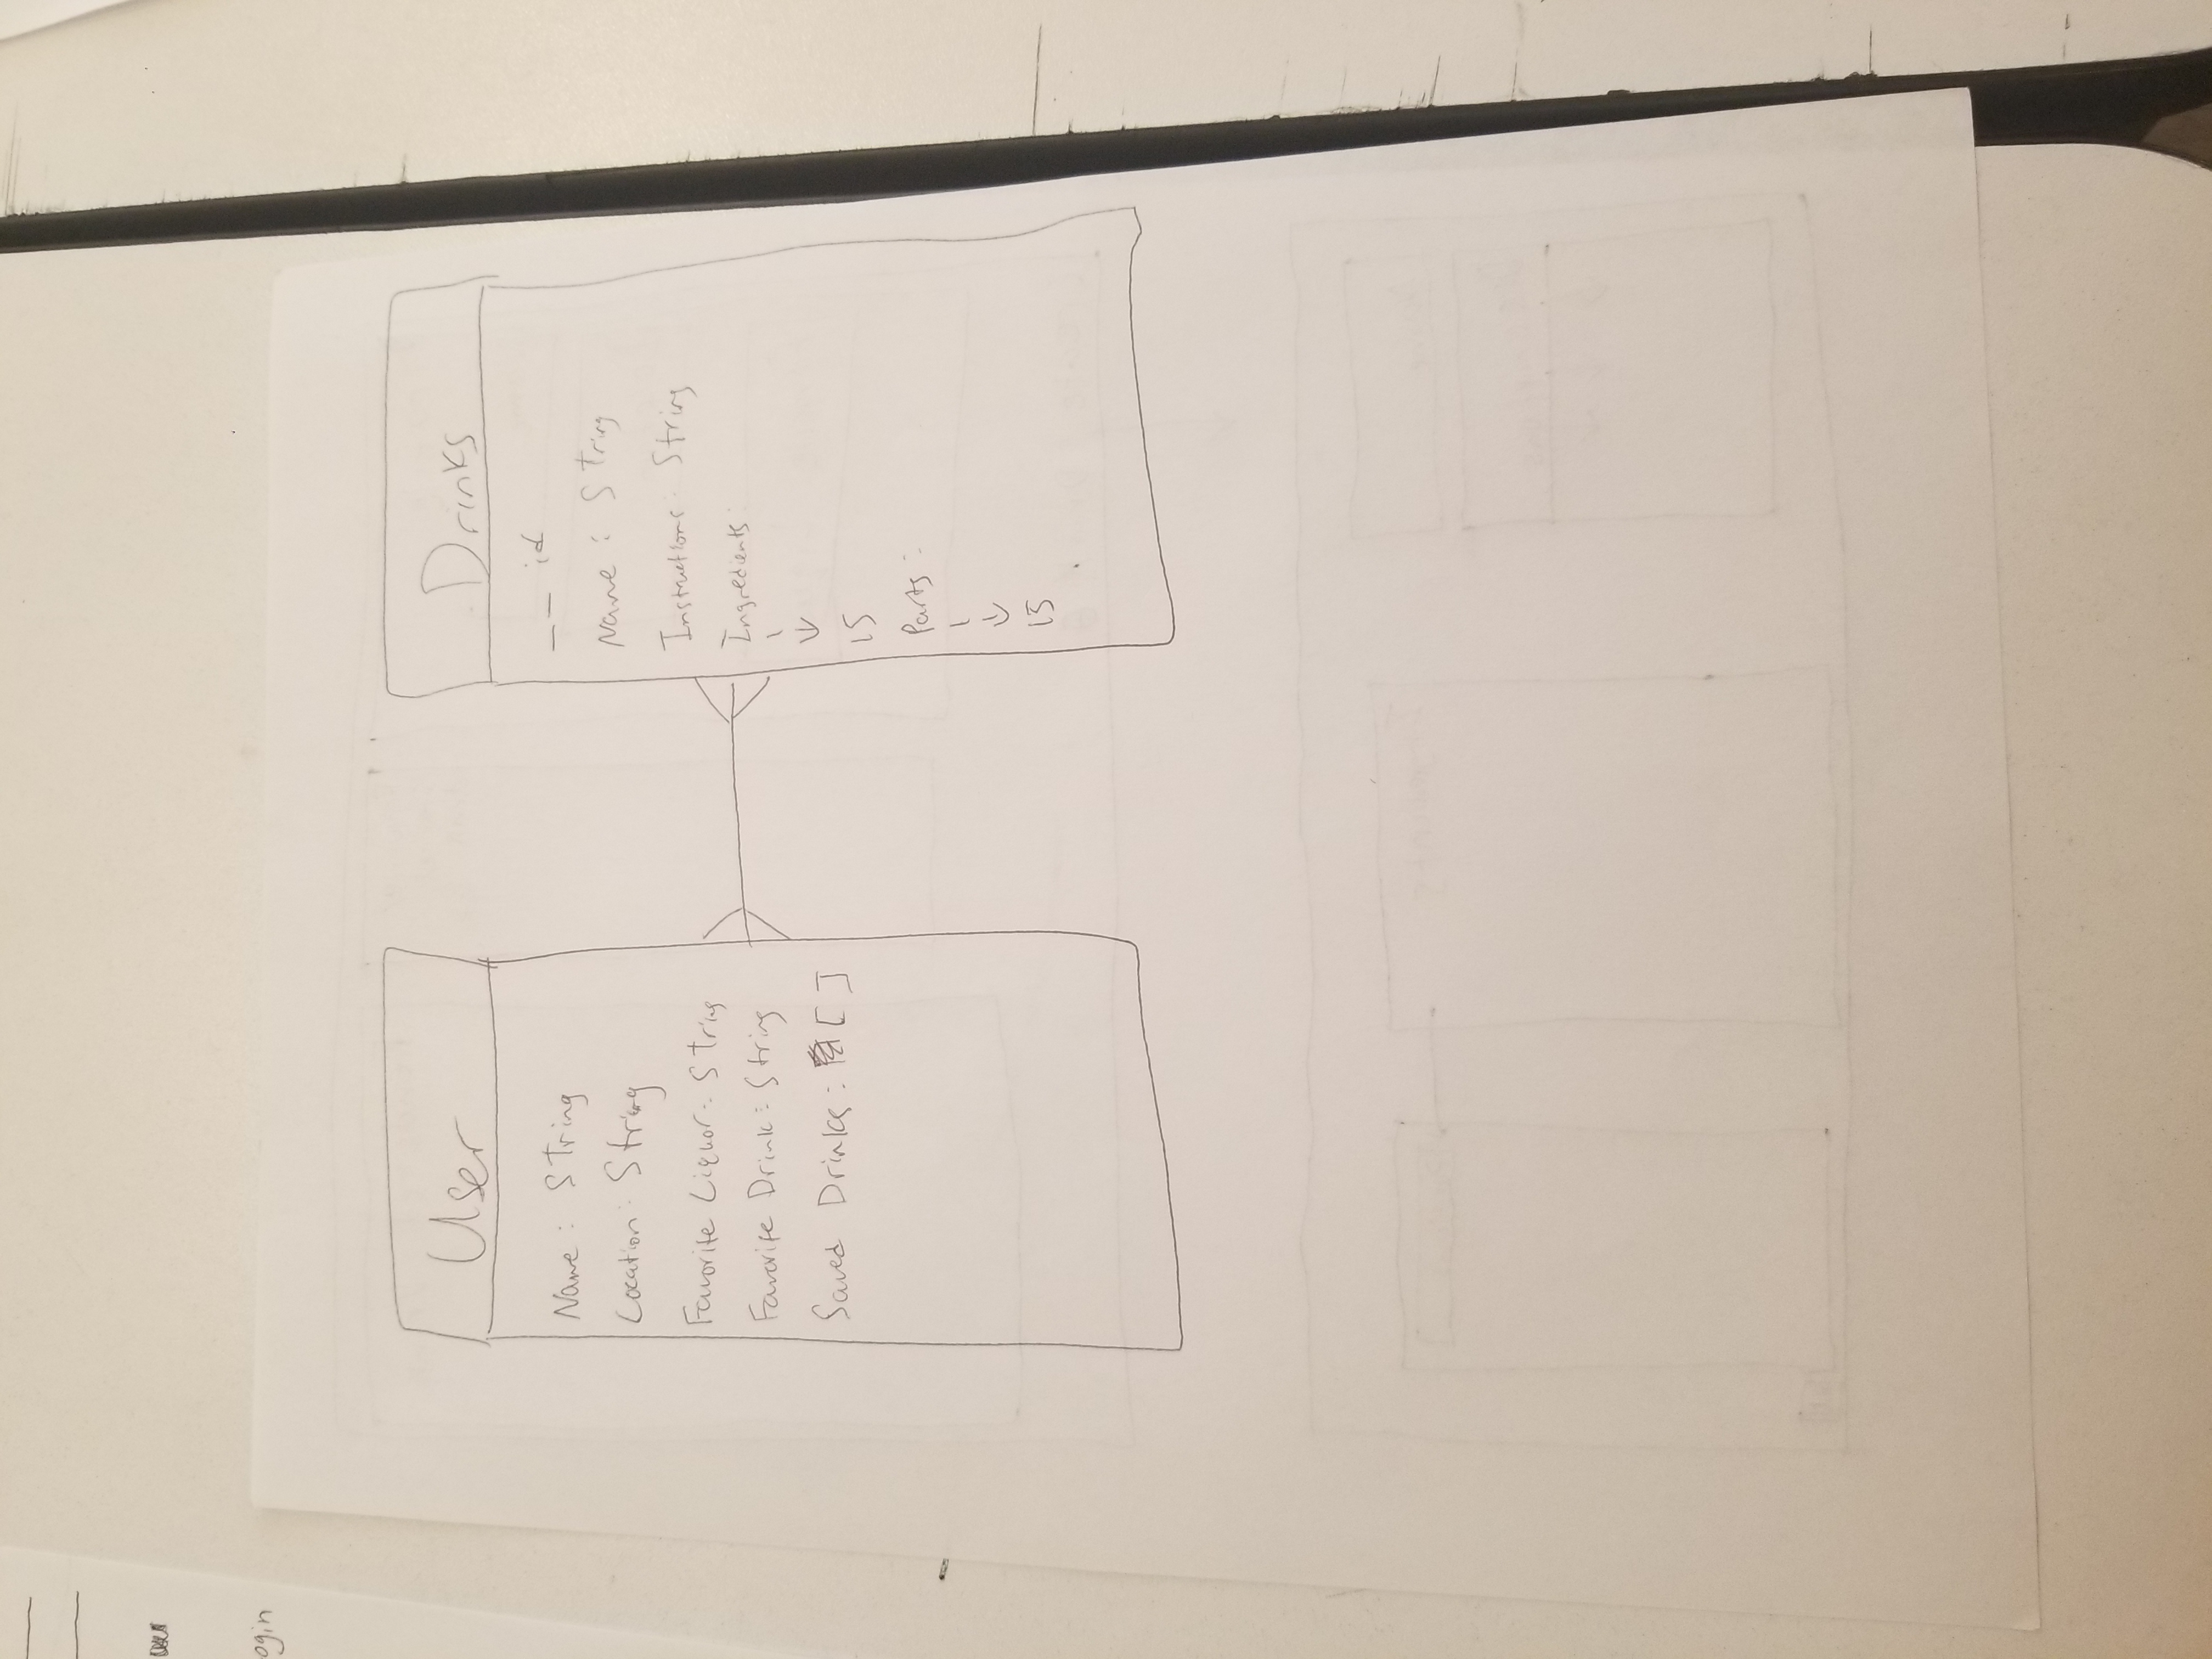 ogin
User
Name: String
Location: String
Favorite Liquor: String
Favorite Drink: String
Saved Drinks: [ ]
Drinks
_ _ id
Name: String
Instructions: String
Ingredients:
1
↓
15
Parts:
1
↓
15